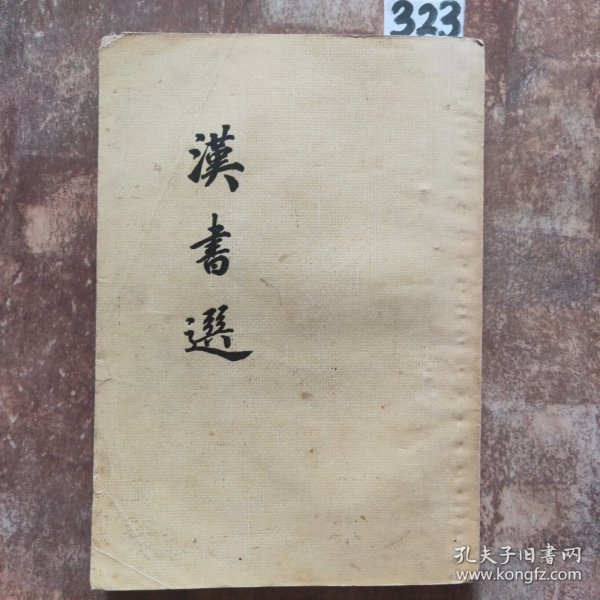 323
漢書選
孔夫子旧书网
www.kongfz.com